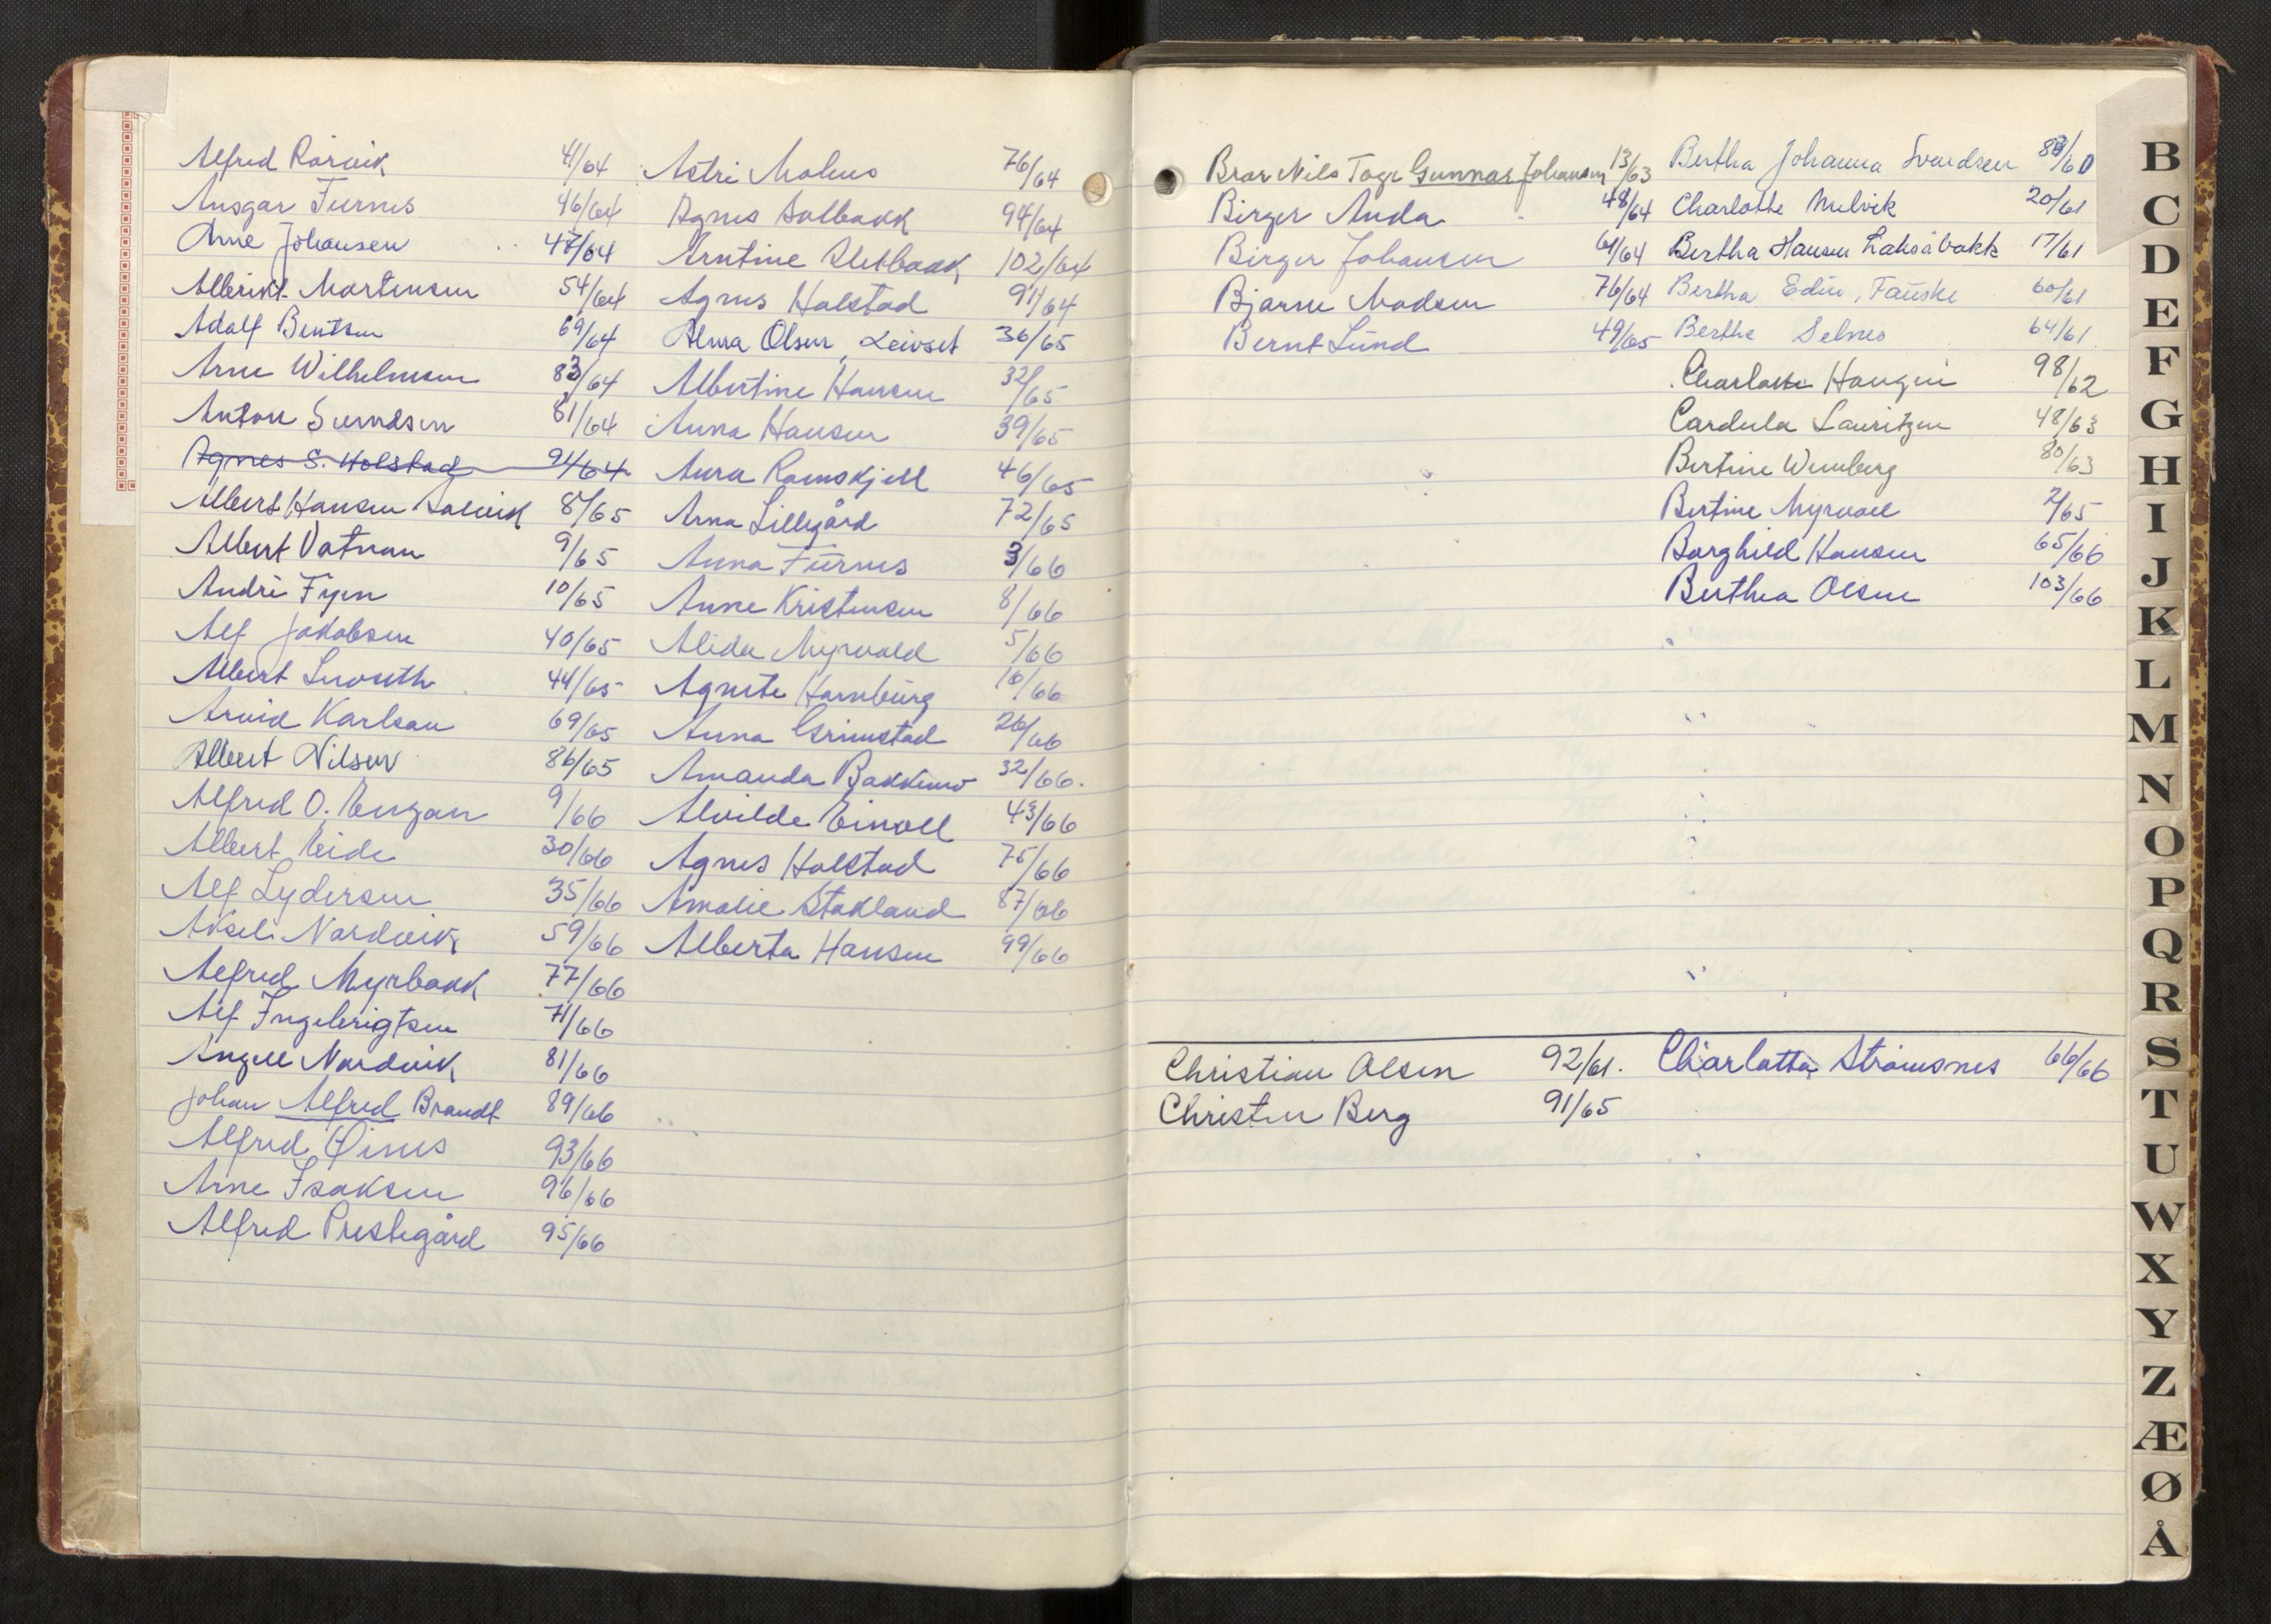 Alfred Rørvik 41/64
Ansgar Furnes 46/64
Arne Johansen 47/64
Albrikt Mortensen 54/64
Adolf Bentsen 69/64
Arne Wilhelmsen 83/64
Anton Svendsen 81/64
Agnes S. Holstad 91/64
Albert Hansen Salvik 8/65
Albert Vatnan 9/65
André Fyen 10/65
Alf Jakobsen 40/65
Albert 44/65
Arvid Karlsen 69/65
Albert Nilsen 86/65
Alfred O. Engan 9/66
Albert Eide 30/66
Alf Lydersen 35/66
Aksel Nordvik 59/66
Alfred Myrbakk 77/66
Alf Ingebrigtsen 71/66
Angell Nordvik 81/66
Johan Alfred Brandt 89/66
Alfred Øines 93/66
Arne Isaksen 96/66
Alfred Prestegård 95/66
Astri Mohus 76/64
Agnes Solbakk 94/64
Arntine 102/64
Agnes Holstad 91/64
Alma Olsen, Leivset 36/65
Albertine Hansen 32/65
Anna Hansen 39/65
Aura Ramskjell 46/65
Arna Lillegård 72/65
Anna Furnes 3/66
Anne Kristensen 8/66
Alida Myrvold 5/66
Agnete Hamburg 16/66
Anna Grimstad 26/66
Amanda Bakkemo 32/66.
Alvilde Einvoll 43/66
Agnes Holstad 75/66
Amalie Stokland 87/66
Alberta Hansen 99/66
Bror Nils Tage Gunnar Johansen 13/63
Birger Anda 48/64
Birger Johansen 61/64
Bjarne Madsen 76/64
Bernt Lund 49/65
Bertha Johanna Svendsen 83/60
Charlotte Mulvik 20/61
Bertha Hansen Laksåbakk 17/61
Bertha Edin, Fauske 60/61
Berthe Selnes 64/61
Charlotte Haugen 98/62
Cardula Lauritzen 48/63
Bertine Wenberg 80/63
Bertine Myrvoll 2/65
Borghild Hansen 65/66
Berthea Olsen 103/66
Christian Olsen 92/61.
Christen Berg 91/65
Charlotta Strømsnes 66/66
B
C
D
E
F
G
H
I
J
K
L
M
N
O
P
Q
R
S
T
U
W
X
Y
Z
Æ
Ø
Å